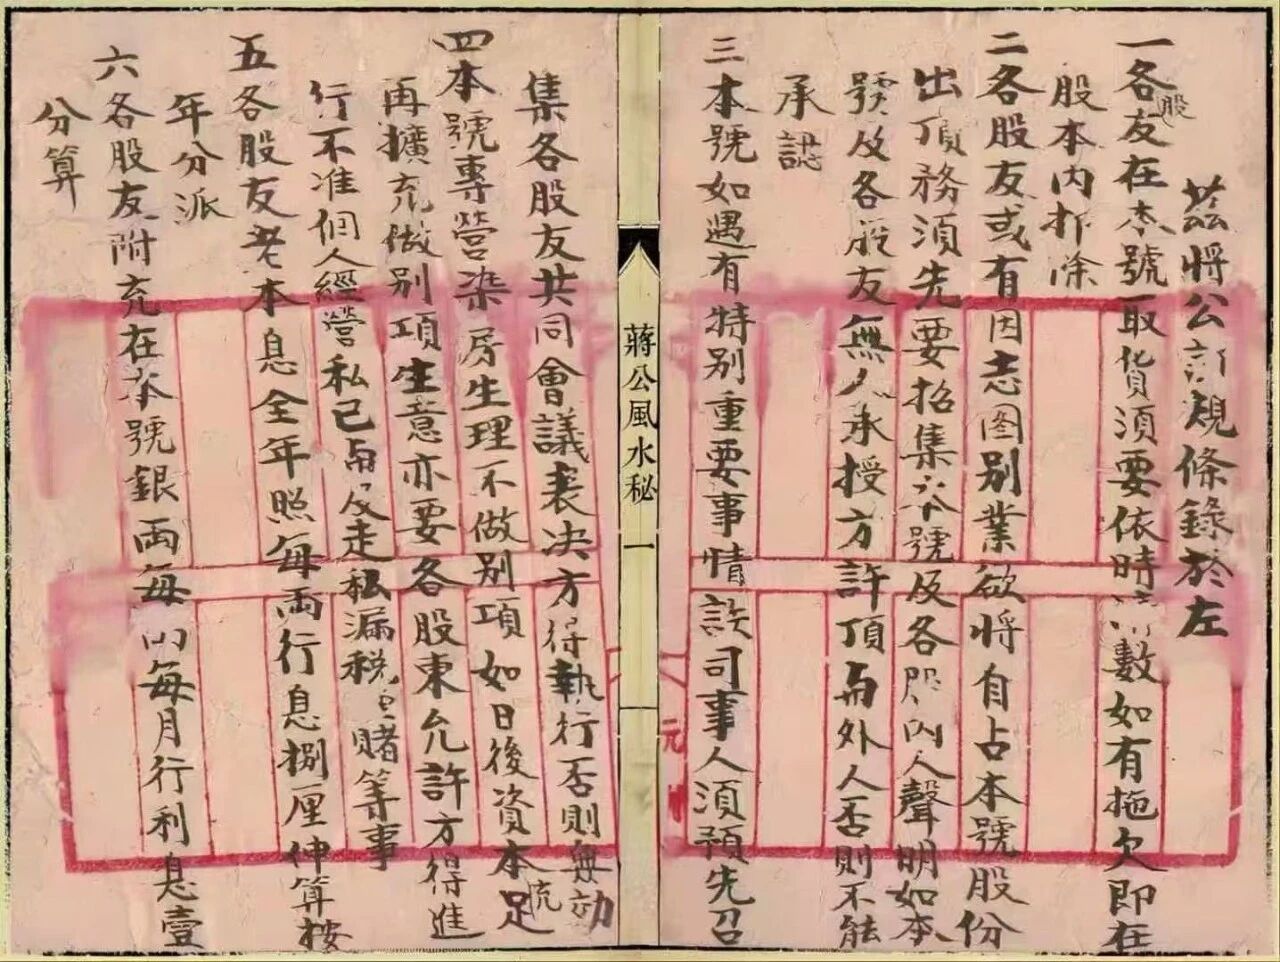 茲將公訂規條錄於左
一各股友在本號取貨須要依時 數如有拖欠即在
股本內扣除
二各股友或有因志图别業欲將自占本號股份
出頂務須先要招集本號及各股內人聲明如本
號及各股友無人承授方許頂与外人否則不能
承認
三本號如遇有特别重要事情該司事人須預先召
集各股友共同會議表决方得執行否則無効
四本號專營染房生理不做别項如日後資本足
再擴充做别項生意亦要各股東允許方得進
行不准個人經營私己 及走私漏稅 賭等事
五各股友老本息全年照每両行息捌厘伸算按
年分派
六各股友附充在本號銀両每 每月行利息壹
分算
蔣公風水秘
一
元